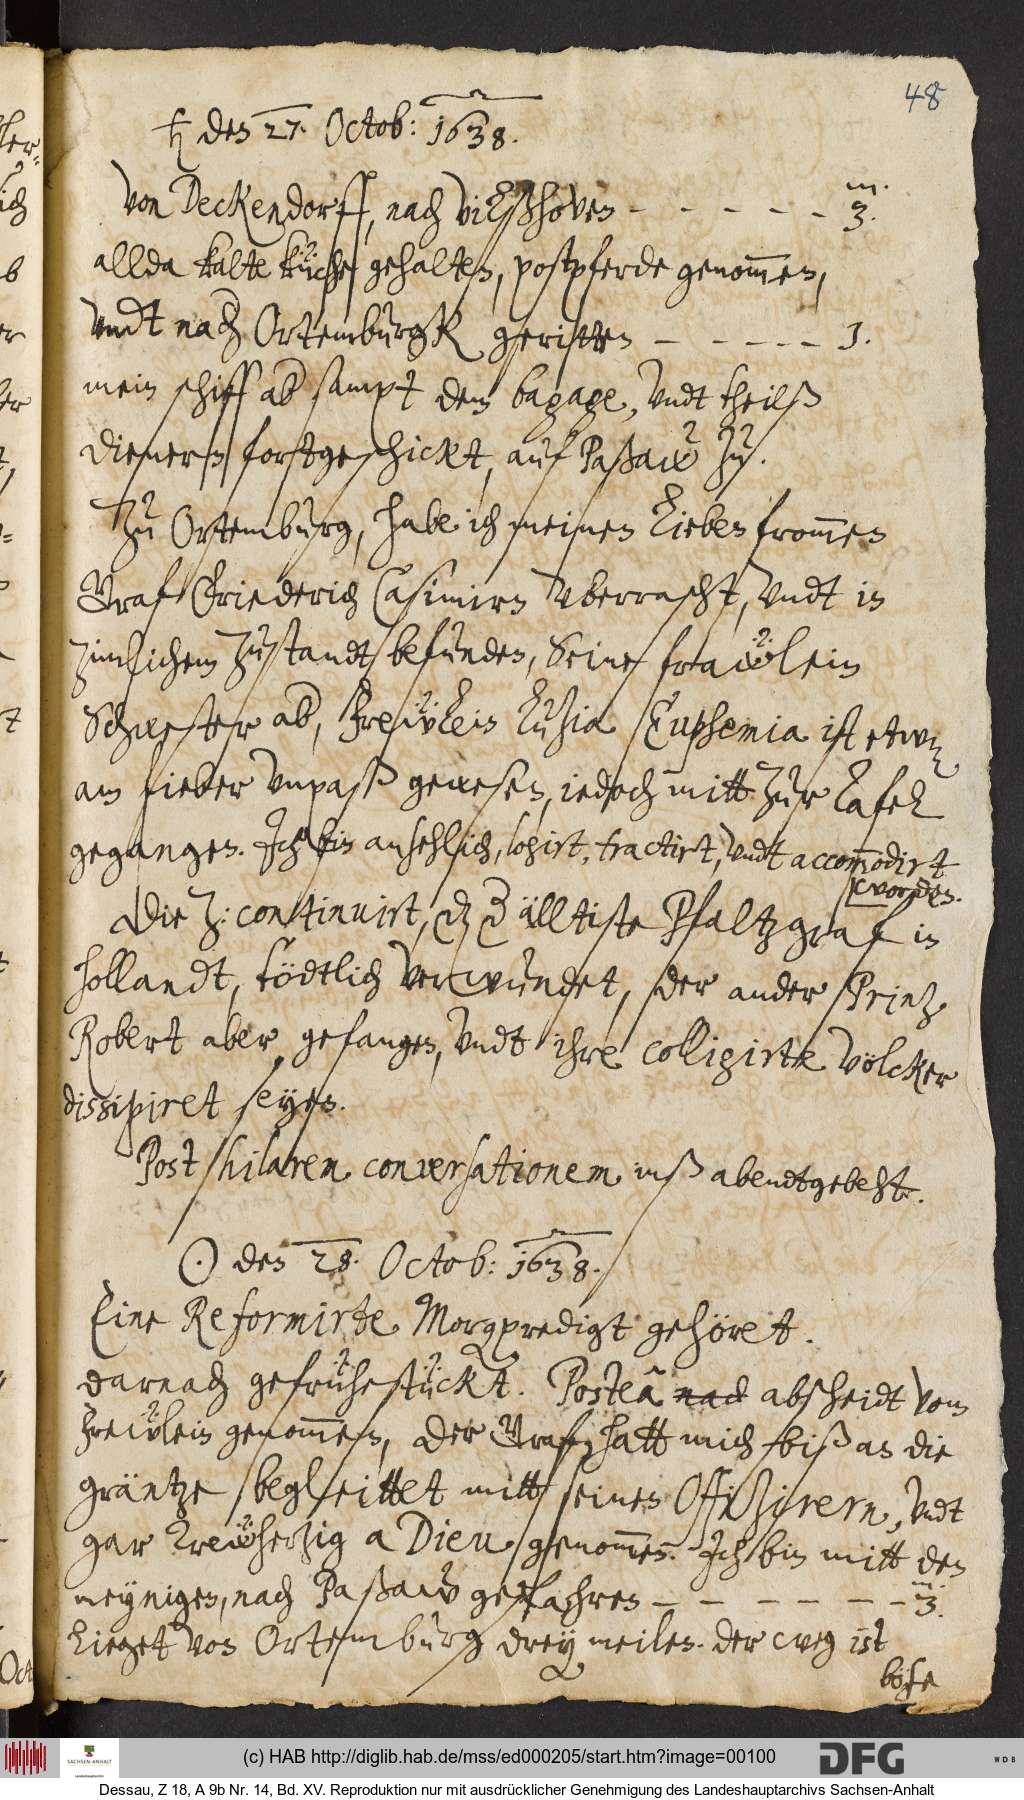 48
♄ den 27. Octob: 1638.
m.
Von Deckendorff, nach Vilßhoven – – – – – 3.
allda kalte küche gehalten, postpferde genom̅en,
vndt nach Ortemburgk geritten – – – – – 1.
mein schiff ab sampt dem bagage, vndt theilß
dienern fortgeschickt, auf Paßaw zu.
Zu Ortemburg, habe ich meinen lieben from̅en
Graf Friederich Casimirn vberrascht, vndt in
zimlichem zustandt befunden, Seine fraẅlein
Schwester ab, Freẅlein Luzia Euphemia ist etwaß
am fieber vnpaß gewesen, iedoch mitt zur Tafel
gegangen. Ich bin ansehlich, losirt, tractirt, vndt accom̅odirt
worden.
Die Z: continuirt, das der älltiste Pfaltzgraf in
Hollandt, tödtlich verwundet, der ander Printz
Robert aber, gefangen, vndt ihre colligirte völcker
dissipiret seyen.
Post hilarem conversationem inß abendtgebeht.
☉ den 28. Octob: 1638.
Eine Reformirte Morgpredigt gehöret.
darnach gefrühestückt. Posteà nach abscheidt vom
Freẅlein genom̅en, der Graf hatt mich biß an die
gräntze begleittet mitt seinen Offizirern, vndt
gar treẅhertzig a Dieu genom̅en. Ich bin mitt den
m.
meynigen, nach Paßaw gefahren – – – – – – 3.
lieget von Ortemburg drey meilen. der weg ist
böse
(c) HAB http://diglib.hab.de/mss/ed000205/start.htm?image=00100
SACHSEN-ANHALT
DFG
WDB
Dessau, Z 18, A 9b Nr. 14, Bd. XV. Reproduktion nur mit ausdrücklicher Genehmigung des Landeshauptarchivs Sachsen-Anhalt